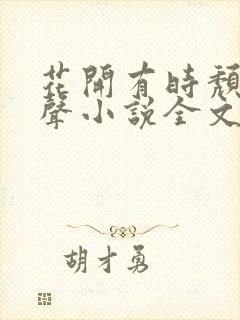 花開有時頹
聲小說全文
胡才勇